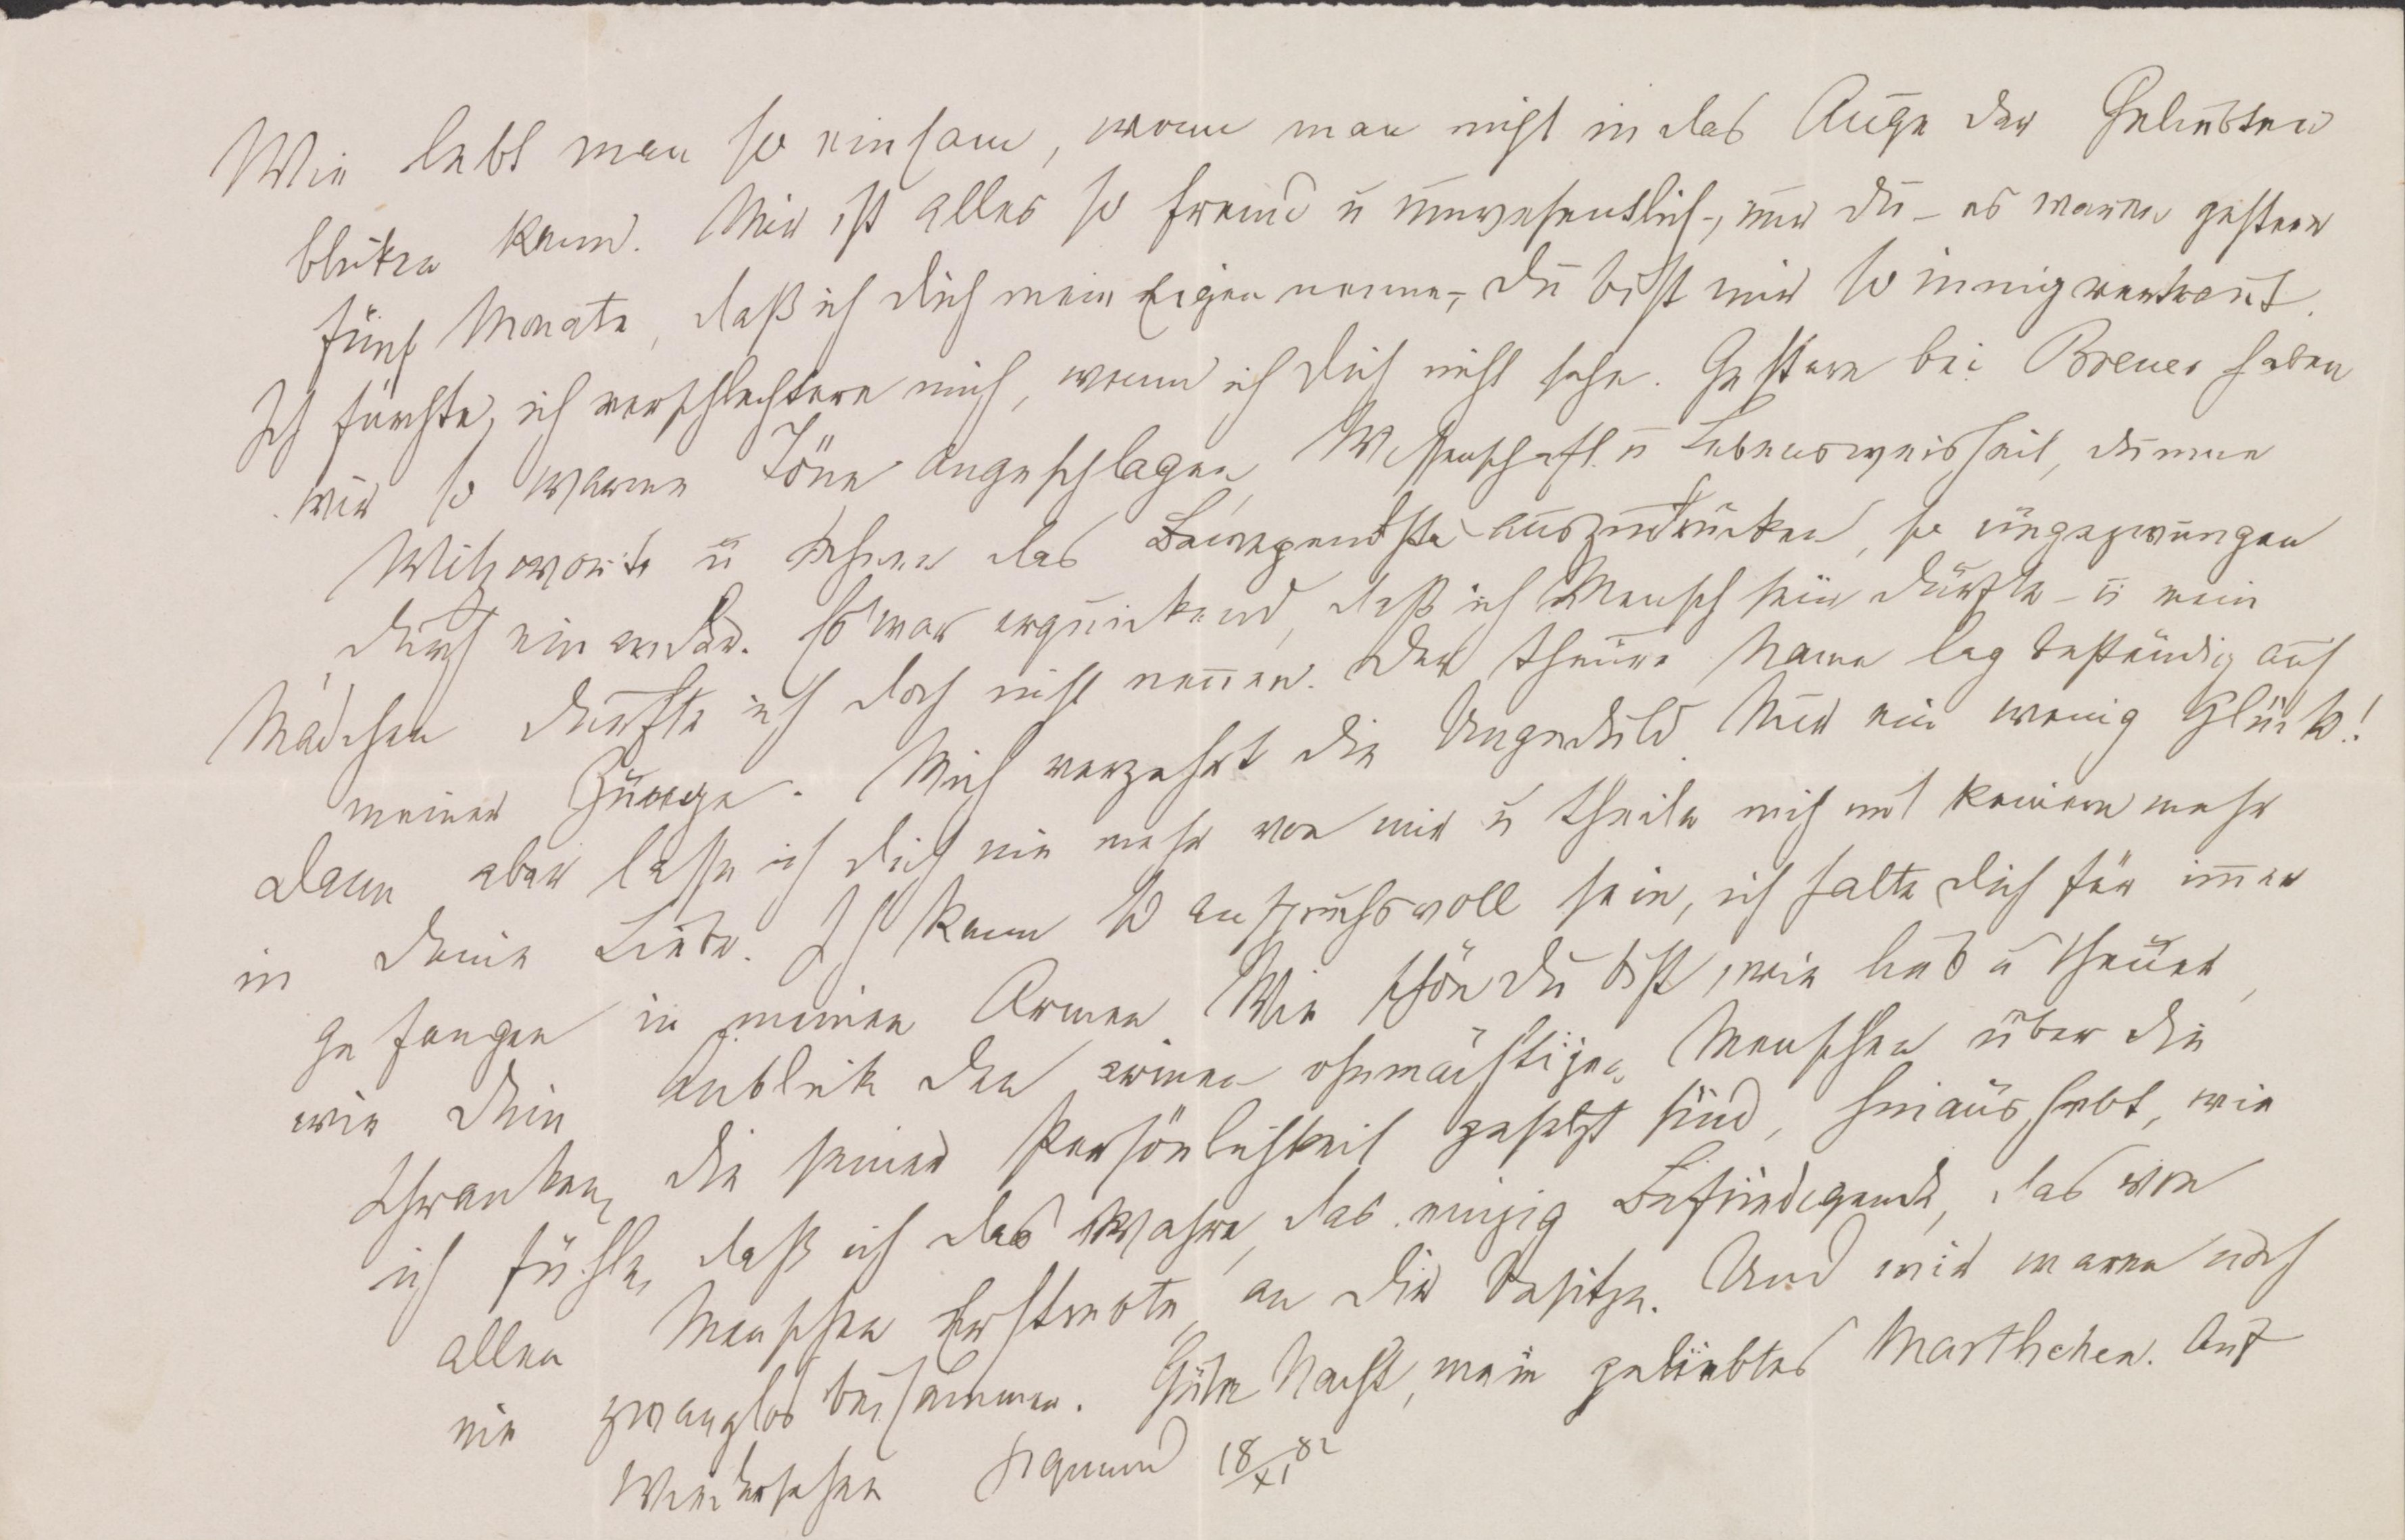 Wie lebt man so einsam, wenn man nicht in das Auge der Geliebten
blicken kann. Mir ist alles so fremd u unwesentlich, nur du – es waren gestern
fünf Monate, daß ich dich mein Eigen nenne, – du bist mir so innig vertraut.
Ich fürchte, ich verschlechtere mich, wenn ich dich nicht sehe. Gestern bei Breuer haben
wir so warme Töne angeschlagen, Wissenschaft u Lebensweisheit, dumme
Witzworte u das auszudrücken, so ungezwungen
durch einander. Es war erquickend, daß ich Mensch sein durfte – u mein
Mädchen durfte ich doch nicht nennen. Der theure Name lag beständig auf
meiner Zunge. Mich verzehrt die Ungeduld. Nur ein wenig Glück!
Dann aber lasse ich dich nie mehr von mir u theile mich mit keinem mehr
in deine Liebe. Ich kann so anspruchsvoll sein, ich halte dich für immer
gefangen in meinen Armen. Wie schön du bist, wie lieb u theuer,
wie dein Anblick den armen ohnmächtigen Menschen über die
Schranken, die seiner Persönlichkeit gesetzt sind, hinaushebt, wie
ich fühle, daß ich das Wahre, das einzig Befriedigende, das von
allen Menschen Erstrebte, an dir besitze. Und wir waren noch
nie zwanglos beisammen. Gute Nacht, mein geliebtes Marthchen. Auf
Wiedersehen Sigmund 18/XI 82